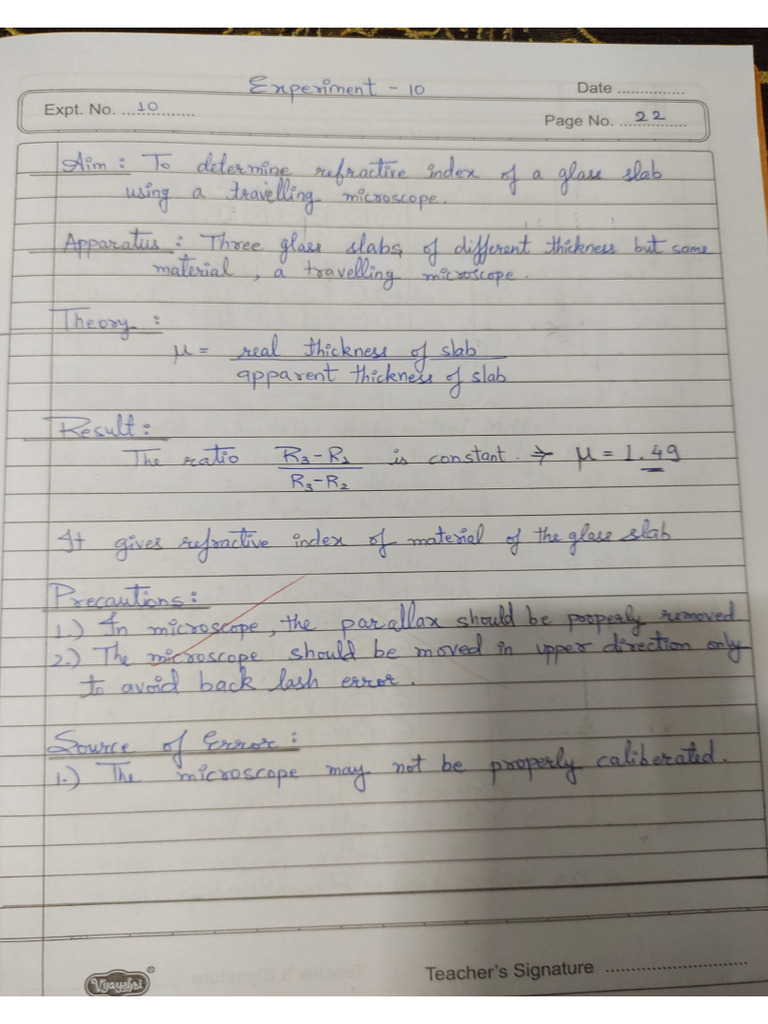 Experiment - 10
Date ...............
Expt. No. ...10...........
Page No. ...22...........
Aim : To determine refractive index of a glass slab
using a travelling microscope.
Apparatus : Three glass slabs of different thickness but same
material, a travelling microscope.
Theory :
μ = real thickness of slab
apparent thickness of slab
Result :
The ratio R3-R1 is constant. ⇒ μ = 1.49
R3-R2
It gives refractive index of material of the glass slab
Precautions :
1.) In microscope, the parallax should be properly removed
2.) The microscope should be moved in upper direction only
to avoid back lash error.
Source of Error :
1.) The microscope may not be properly caliberated.
Vijayshri ®
Teacher's Signature ..............................